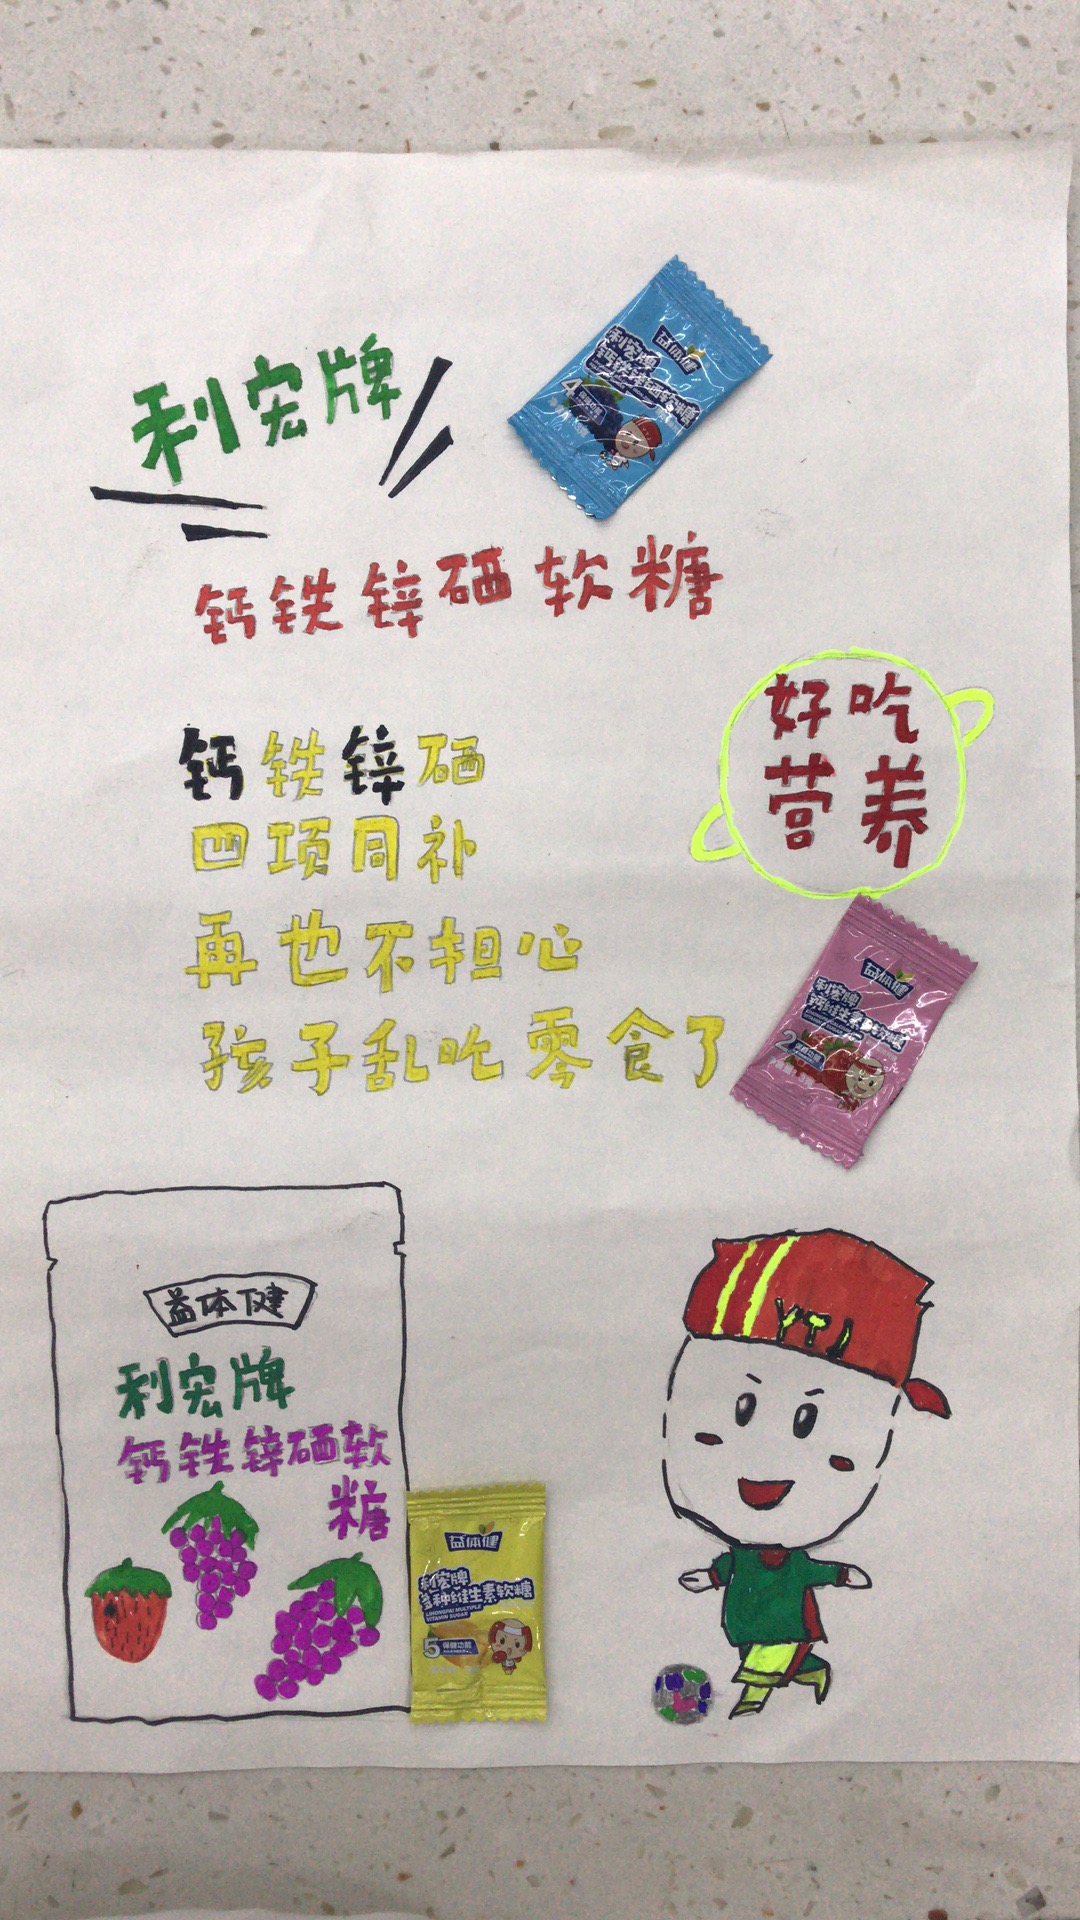 利宏牌
益体健
利宏牌
钙铁锌硒软糖
4
保健功能
钙铁锌硒软糖
好吃
营养
钙铁锌硒
四项同补
再也不担心
孩子乱吃零食了
益体健
利宏牌
钙维生素D软糖
2
保健功能
益体健
利宏牌
钙铁锌硒软
糖
YTJ
益体健
利宏牌
多种维生素软糖
LIHONGPAI MULTIPLE
VITAMIN SUGAR
5 保健功能